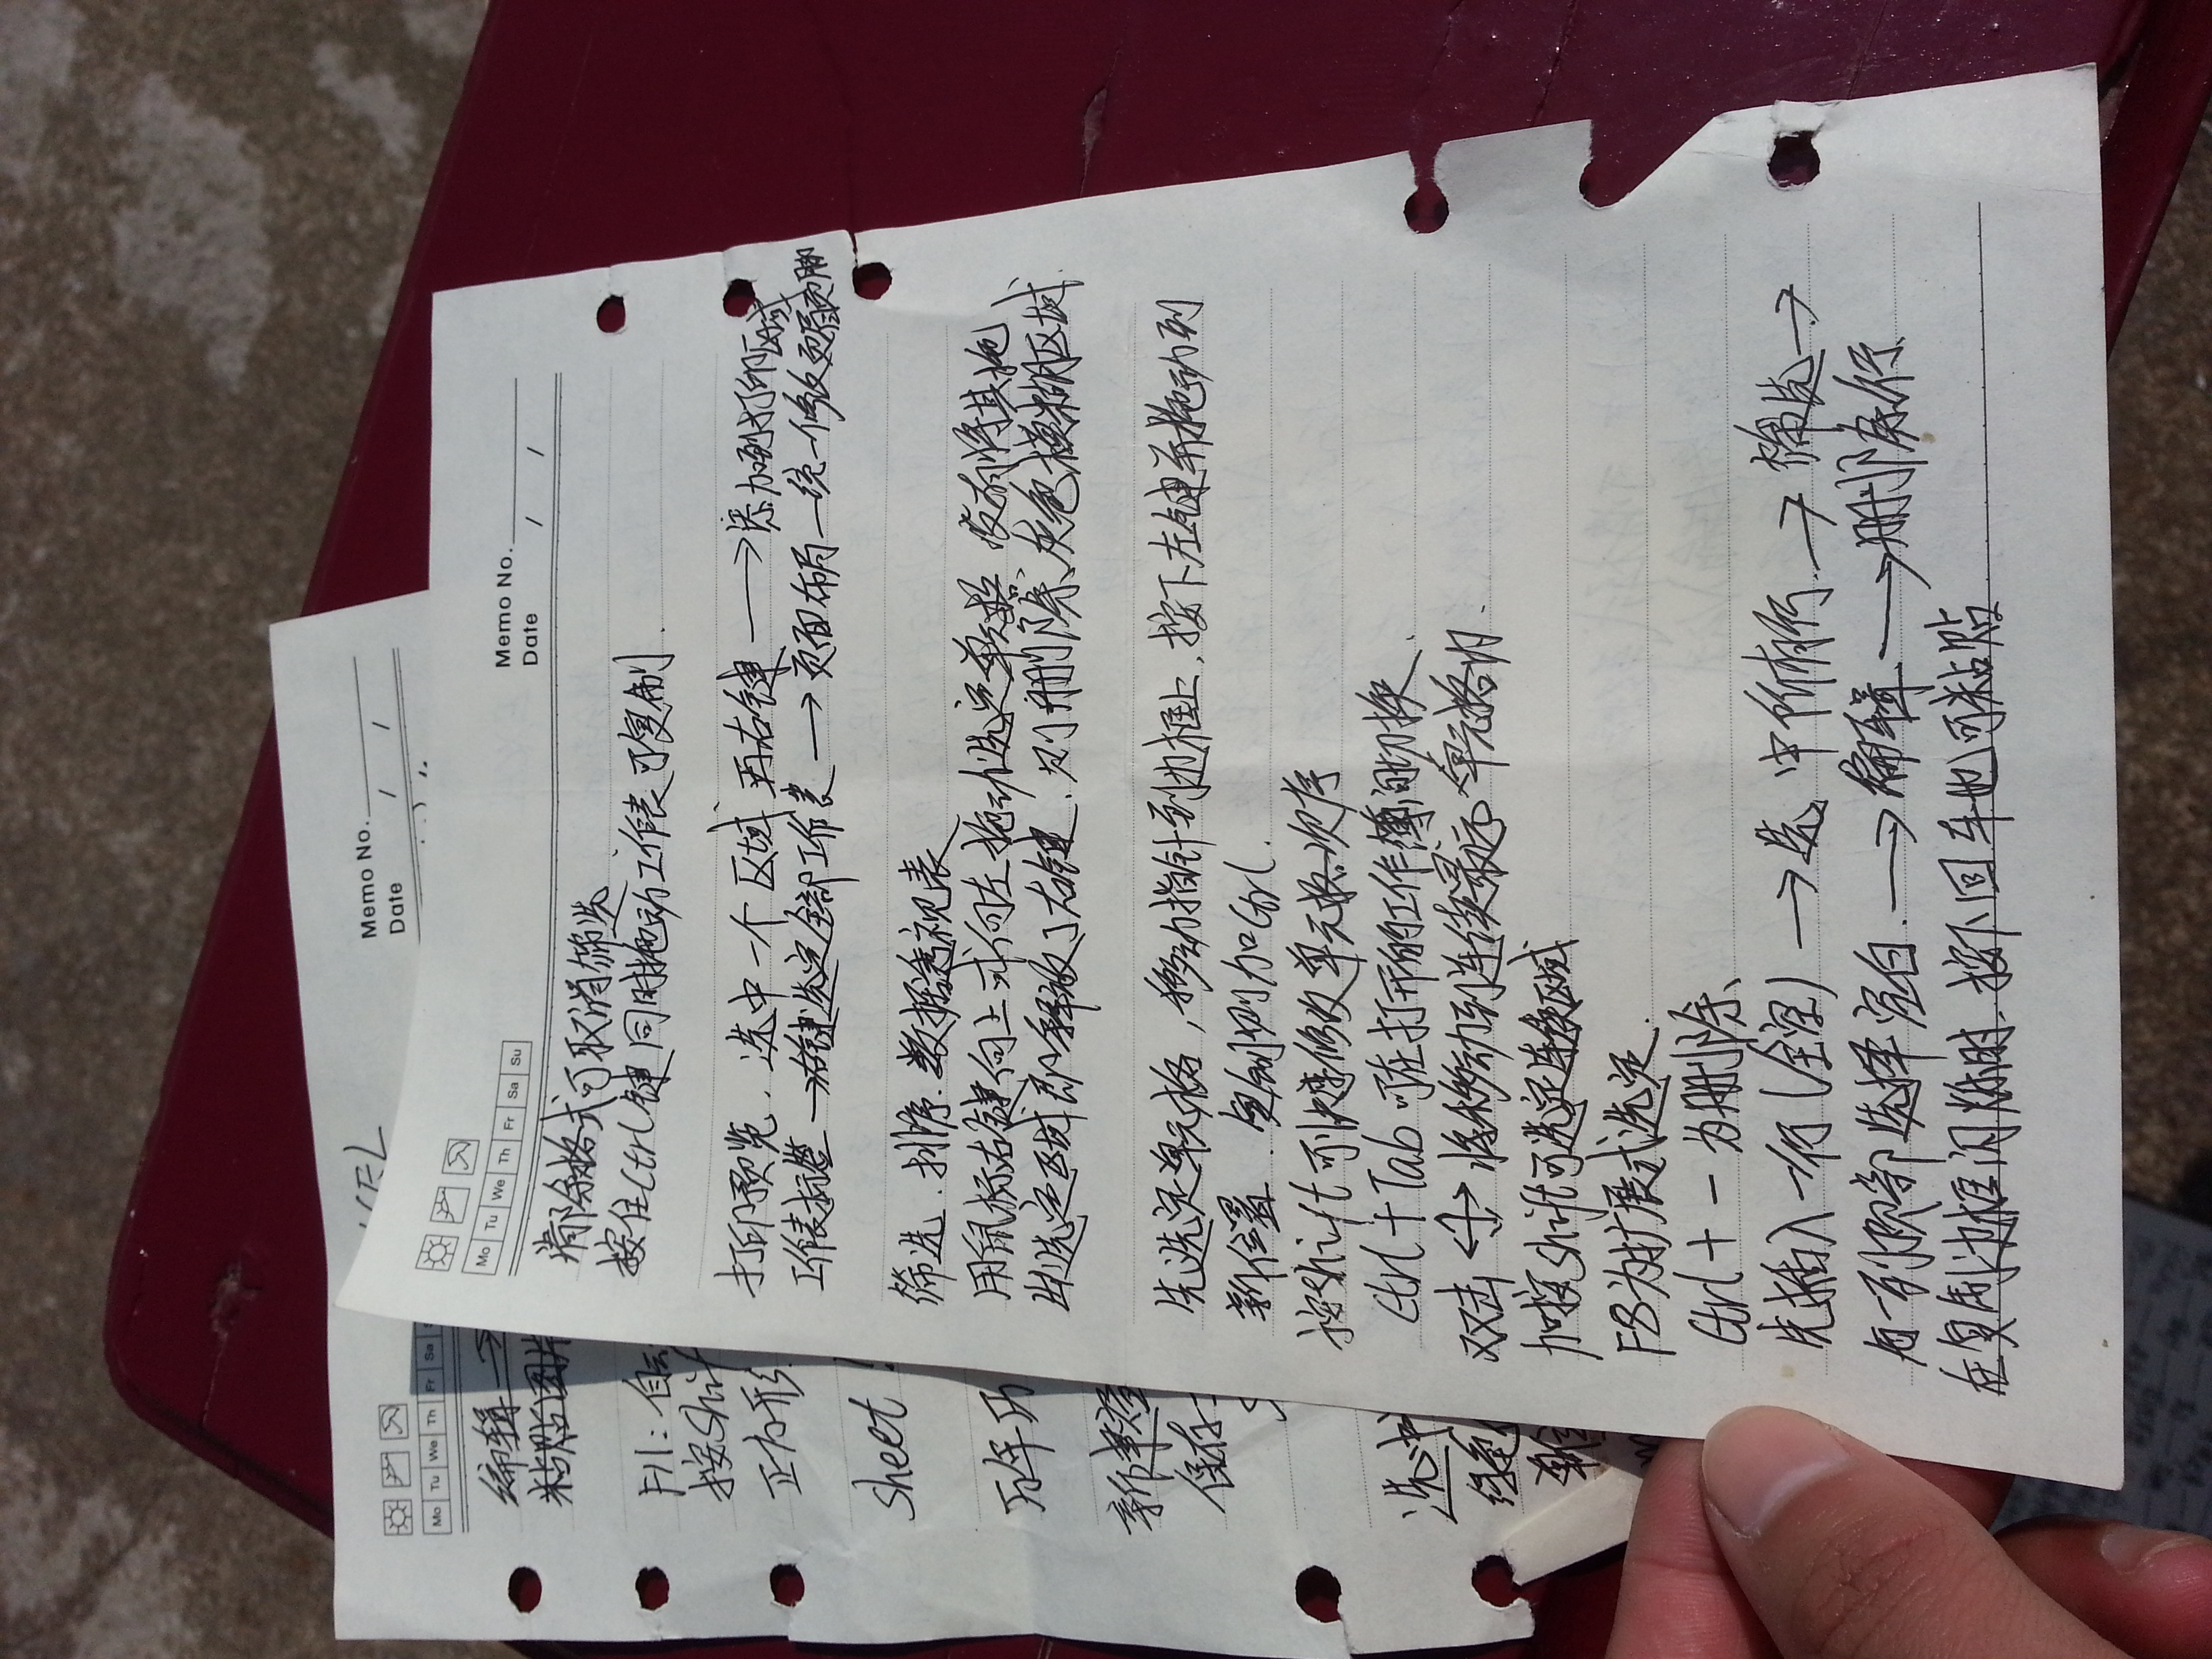 XEL
Memo No.
Date / /
Mo Tu We Th Fr Sa
编辑→
粘贴图片
F11：自动
按Shift
正方形
Sheet
万年历
新建
保存
选中
绝
单
Memo No.
Date / /
Mo Tu We Th Fr Sa Su
清除格式可取消筛选
按住Ctrl键同时拖动工作表可复制.
打印预览．选中一个区域 再右键→添加到打印区域
工作表标签→右键选定全部工作表→页面布局—统一修改页眉页脚
筛选．排序．数据透视表
用鼠标右键向上或向左拖动选定单元格 没有将其拖
出选定区域即释放了右键．则删除灰色模糊区域.
先选定单元格，移动指针到边框上．按下左键并拖动到
新位置．复制则加Ctrl.
按Shift可快速修改单元格次序
Ctrl+Tab可在打开的工作簿间切换.
双击 将移动到连续最远单元格内.
加按Shift可选定连续区域
F8为扩展式选定.
Ctrl+-为删除
先插入一行(全空)→选中所有行.→筛选→
每一列顶部选择空白.→编辑→删除行
在复制边框闪烁时．按下回车也可粘贴